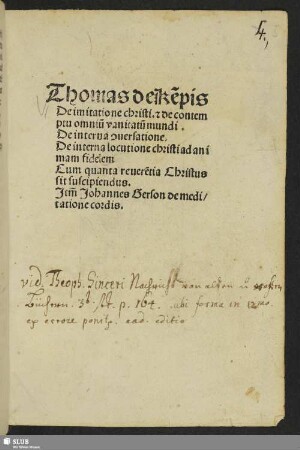 4,
Thomas de kēpis
De imitatione christi. ⁊ de contem
ptu omniū vanitatū mundi.
De interna ↄuersatione.
De interna locutione christi ad ani
mam fidelem
Cum quanta reuerētia Christus
sit suscipiendus.
Itē Johannes Gerson de medi/
tatione cordis.
vid. Theoph. Sinceri Nachricht von alten u.
Büchern. 3t. St. p. 164. ubi forma in 12mo
ex errore ponit. ead. editio
SLUB